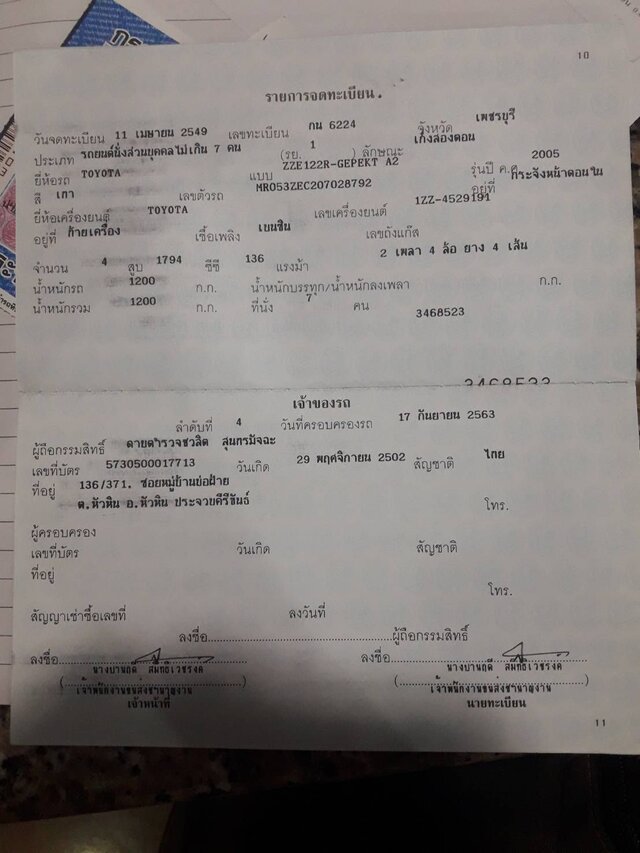 10
รายการจดทะเบียน.
วันจดทะเบียน 11 เมษายน 2549 เลขทะเบียน กน 6224 จังหวัด เพชรบุรี
ประเภท รถยนต์นั่งส่วนบุคคลไม่เกิน 7 คน (รย. 1 ) ลักษณะ เก๋งสองตอน
ยี่ห้อรถ TOYOTA แบบ ZZE122R-GEPEKT A2 รุ่นปี ค.ศ. 2005
สี เทา เลขตัวรถ MR053ZEC207028792 อยู่ที่ กระจังหน้าตอนใน
ยี่ห้อเครื่องยนต์ TOYOTA เลขเครื่องยนต์ 1ZZ-4529191
อยู่ที่ ท้ายเครื่อง เชื้อเพลิง เบนซิน เลขถังแก๊ส
จำนวน 4 สูบ 1794 ซีซี 136 แรงม้า 2 เพลา 4 ล้อ ยาง 4 เส้น
น้ำหนักรถ 1200 ก.ก. น้ำหนักบรรทุก/น้ำหนักลงเพลา ก.ก.
น้ำหนักรวม 1200 ก.ก. ที่นั่ง 7 คน 3468523
เจ้าของรถ
ลำดับที่ 4 วันที่ครอบครองรถ 17 กันยายน 2563
ผู้ถือกรรมสิทธิ์ ดาบตำรวจชวลิต
เลขที่บัตร 5730500017713 วันเกิด 29 พฤศจิกายน 2502 สัญชาติ ไทย
ที่อยู่ 136/371. ซอยหมู่บ้านบ่อฝ้าย
ต.หัวหิน อ.หัวหิน ประจวบคีรีขันธ์ โทร.
ผู้ครอบครอง
เลขที่บัตร วันเกิด สัญชาติ
ที่อยู่
โทร.
สัญญาเช่าซื้อเลขที่ ลงวันที่
ลงชื่อ ผู้ถือกรรมสิทธิ์
ลงชื่อ ลงชื่อ
เจ้าพนักงานขนส่งชำนาญงาน เจ้าพนักงานขนส่งชำนาญงาน
เจ้าหน้าที่ นายทะเบียน
11